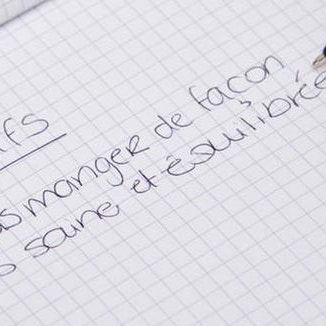 manger de façon
saine et équilibrée